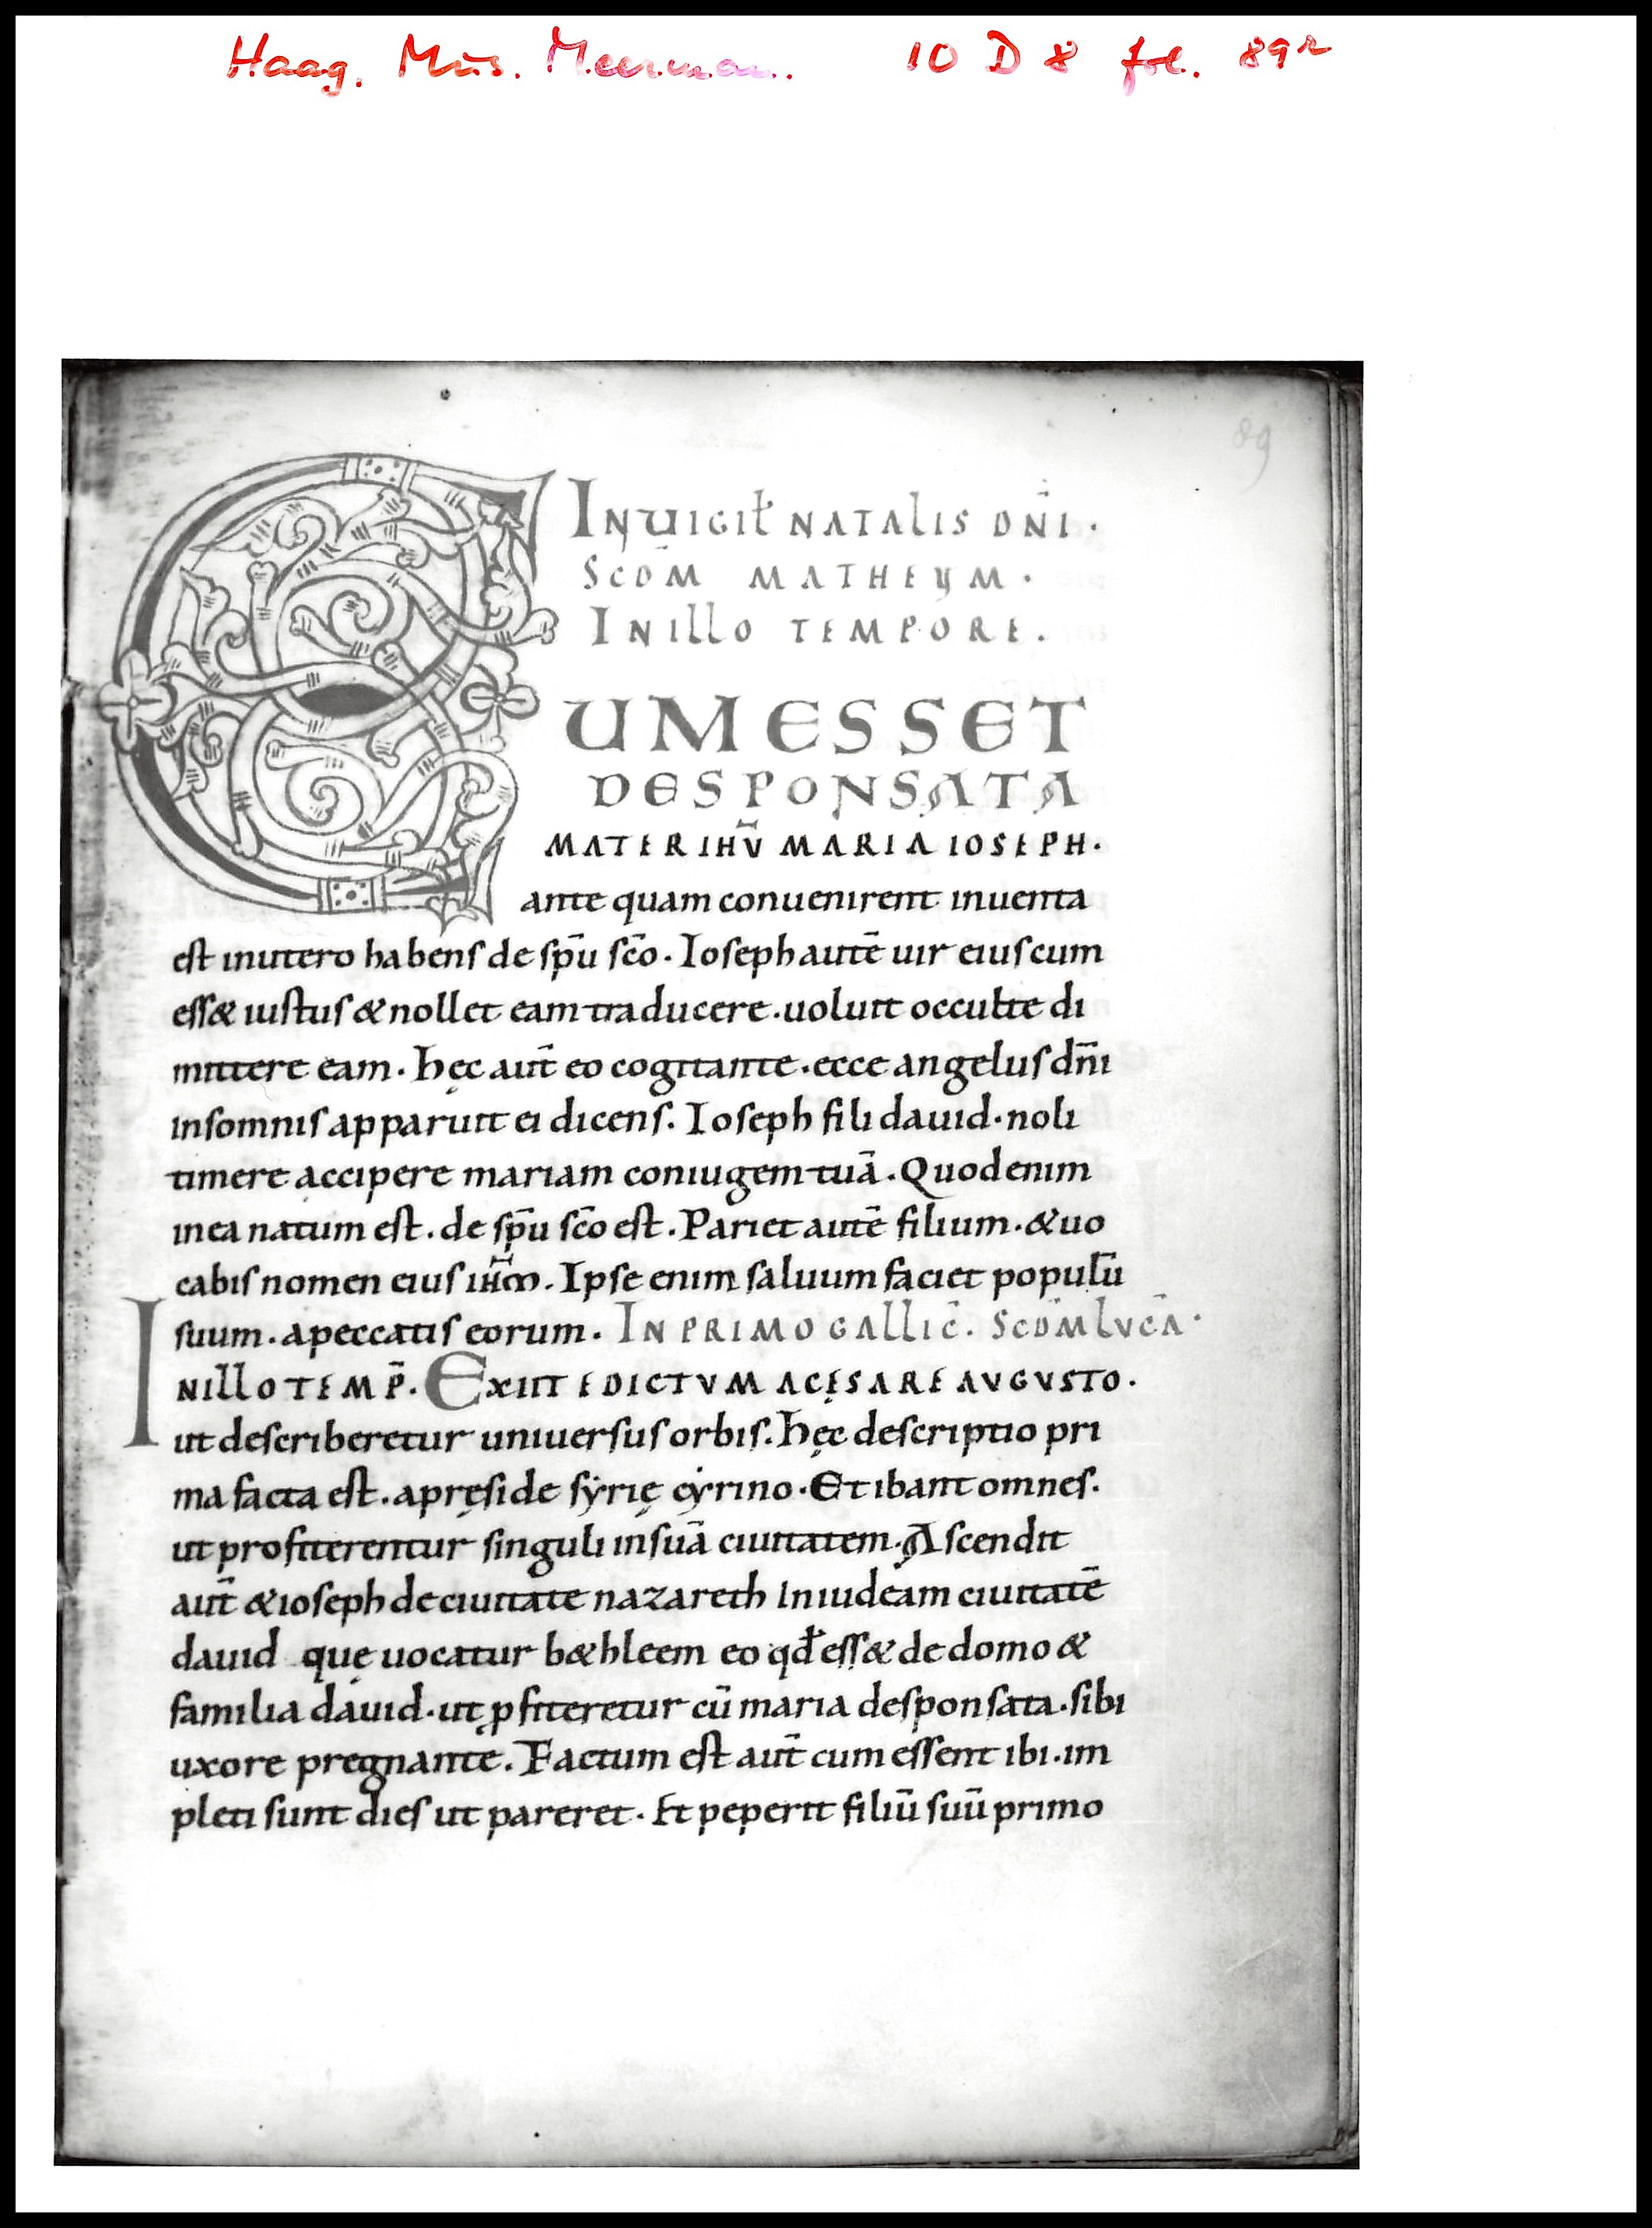 Haag. Mus. Meerman. 10 D 8 fol. 89r
89
IN UIGIŁ NATALIS DÑI ·
SCDM MATHEUM ·
IN ILLO TEMPORE .
CUM ESSET
DESPONSATA
MATER IHV̄ MARIA IOSEPH ·
ante quam conuenirent inuenta
est inutero habens de sp̄u sc̄o · Ioseph autē uir eius cum
ess& iustus & nollet eam traducere . uoluit occulte di
mittere eam . hęc aut̄ eo cogitante . ecce angelus dn̄i
insomnis apparuit ei dicens . Ioseph fili dauid . noli
timere accipere mariam coniugem tuā . Quod enim
inea natum est . de sp̄u sc̄o est . Pariet autē filium . & uo
cabis nomen eius ihm̄ . Ipse enim saluum faciet populū
suum . apeccatis eorum . IN PRIMO GALLIC̄ . SCDM LVCĀ ·
INILLO TEMP̄ . EXIIT EDICTVM ACĘSARE AVGVSTO .
ut describeretur uniuersus orbis . hęc descriptio pri
ma facta est . apręside syrię cyrino . Et ibant omnes .
ut profiterentur singuli insuā ciuitatem . Ascendit
aut̄ & ioseph deciuitate nazareth iniudeam ciuitatē
dauid quę uocatur b&hleem eo qđ ess& de domo &
familia dauid . ut ꝓfiteretur cū maria desponsata . sibi
uxore pregnante . Factum est aut̄ cum essent ibi . im
pleti sunt dies ut pareret . Et peperit filiū suū primo